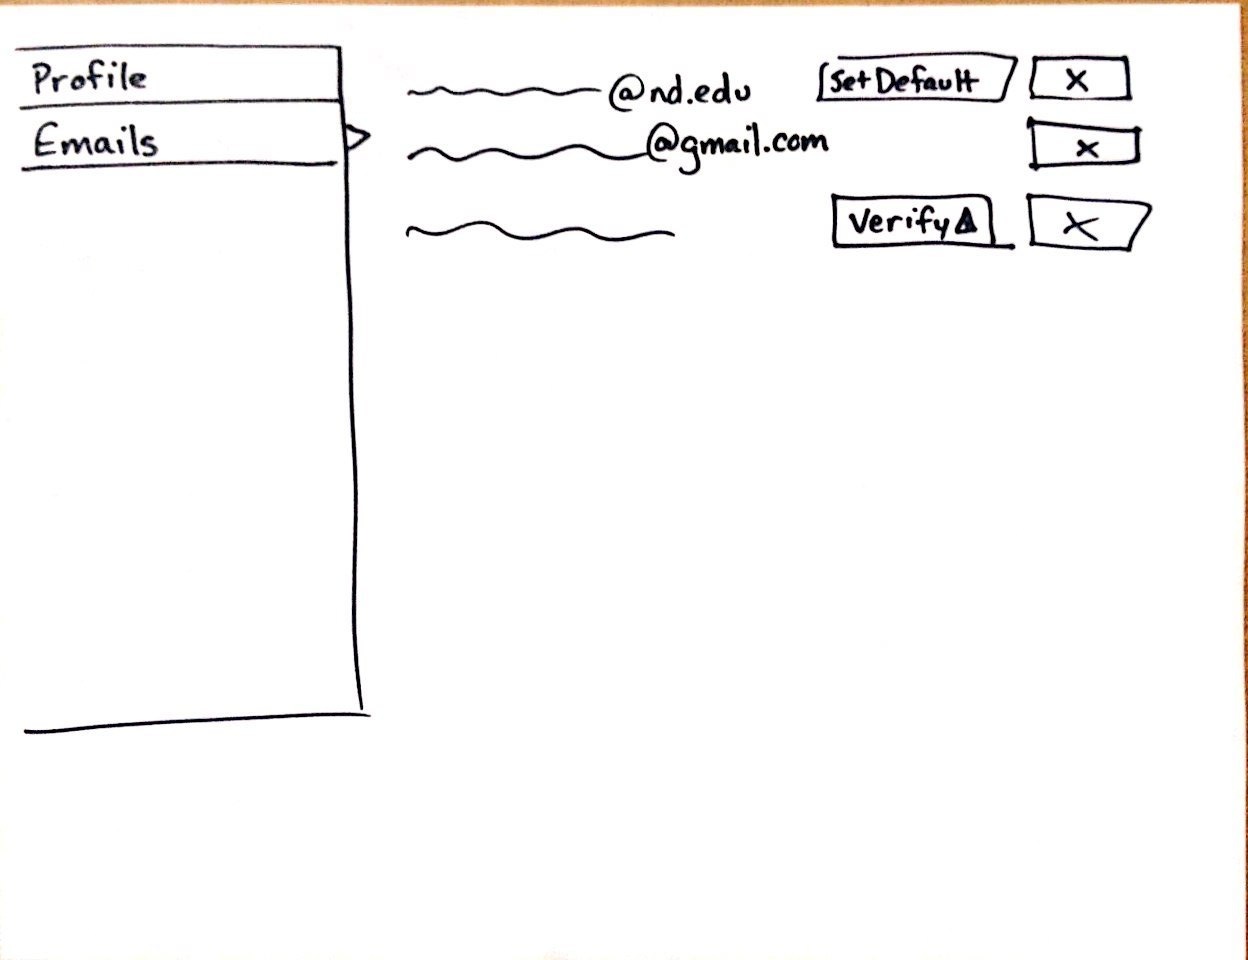 Profile
Emails
@nd.edu Set Default X
@gmail.com X
Verify X